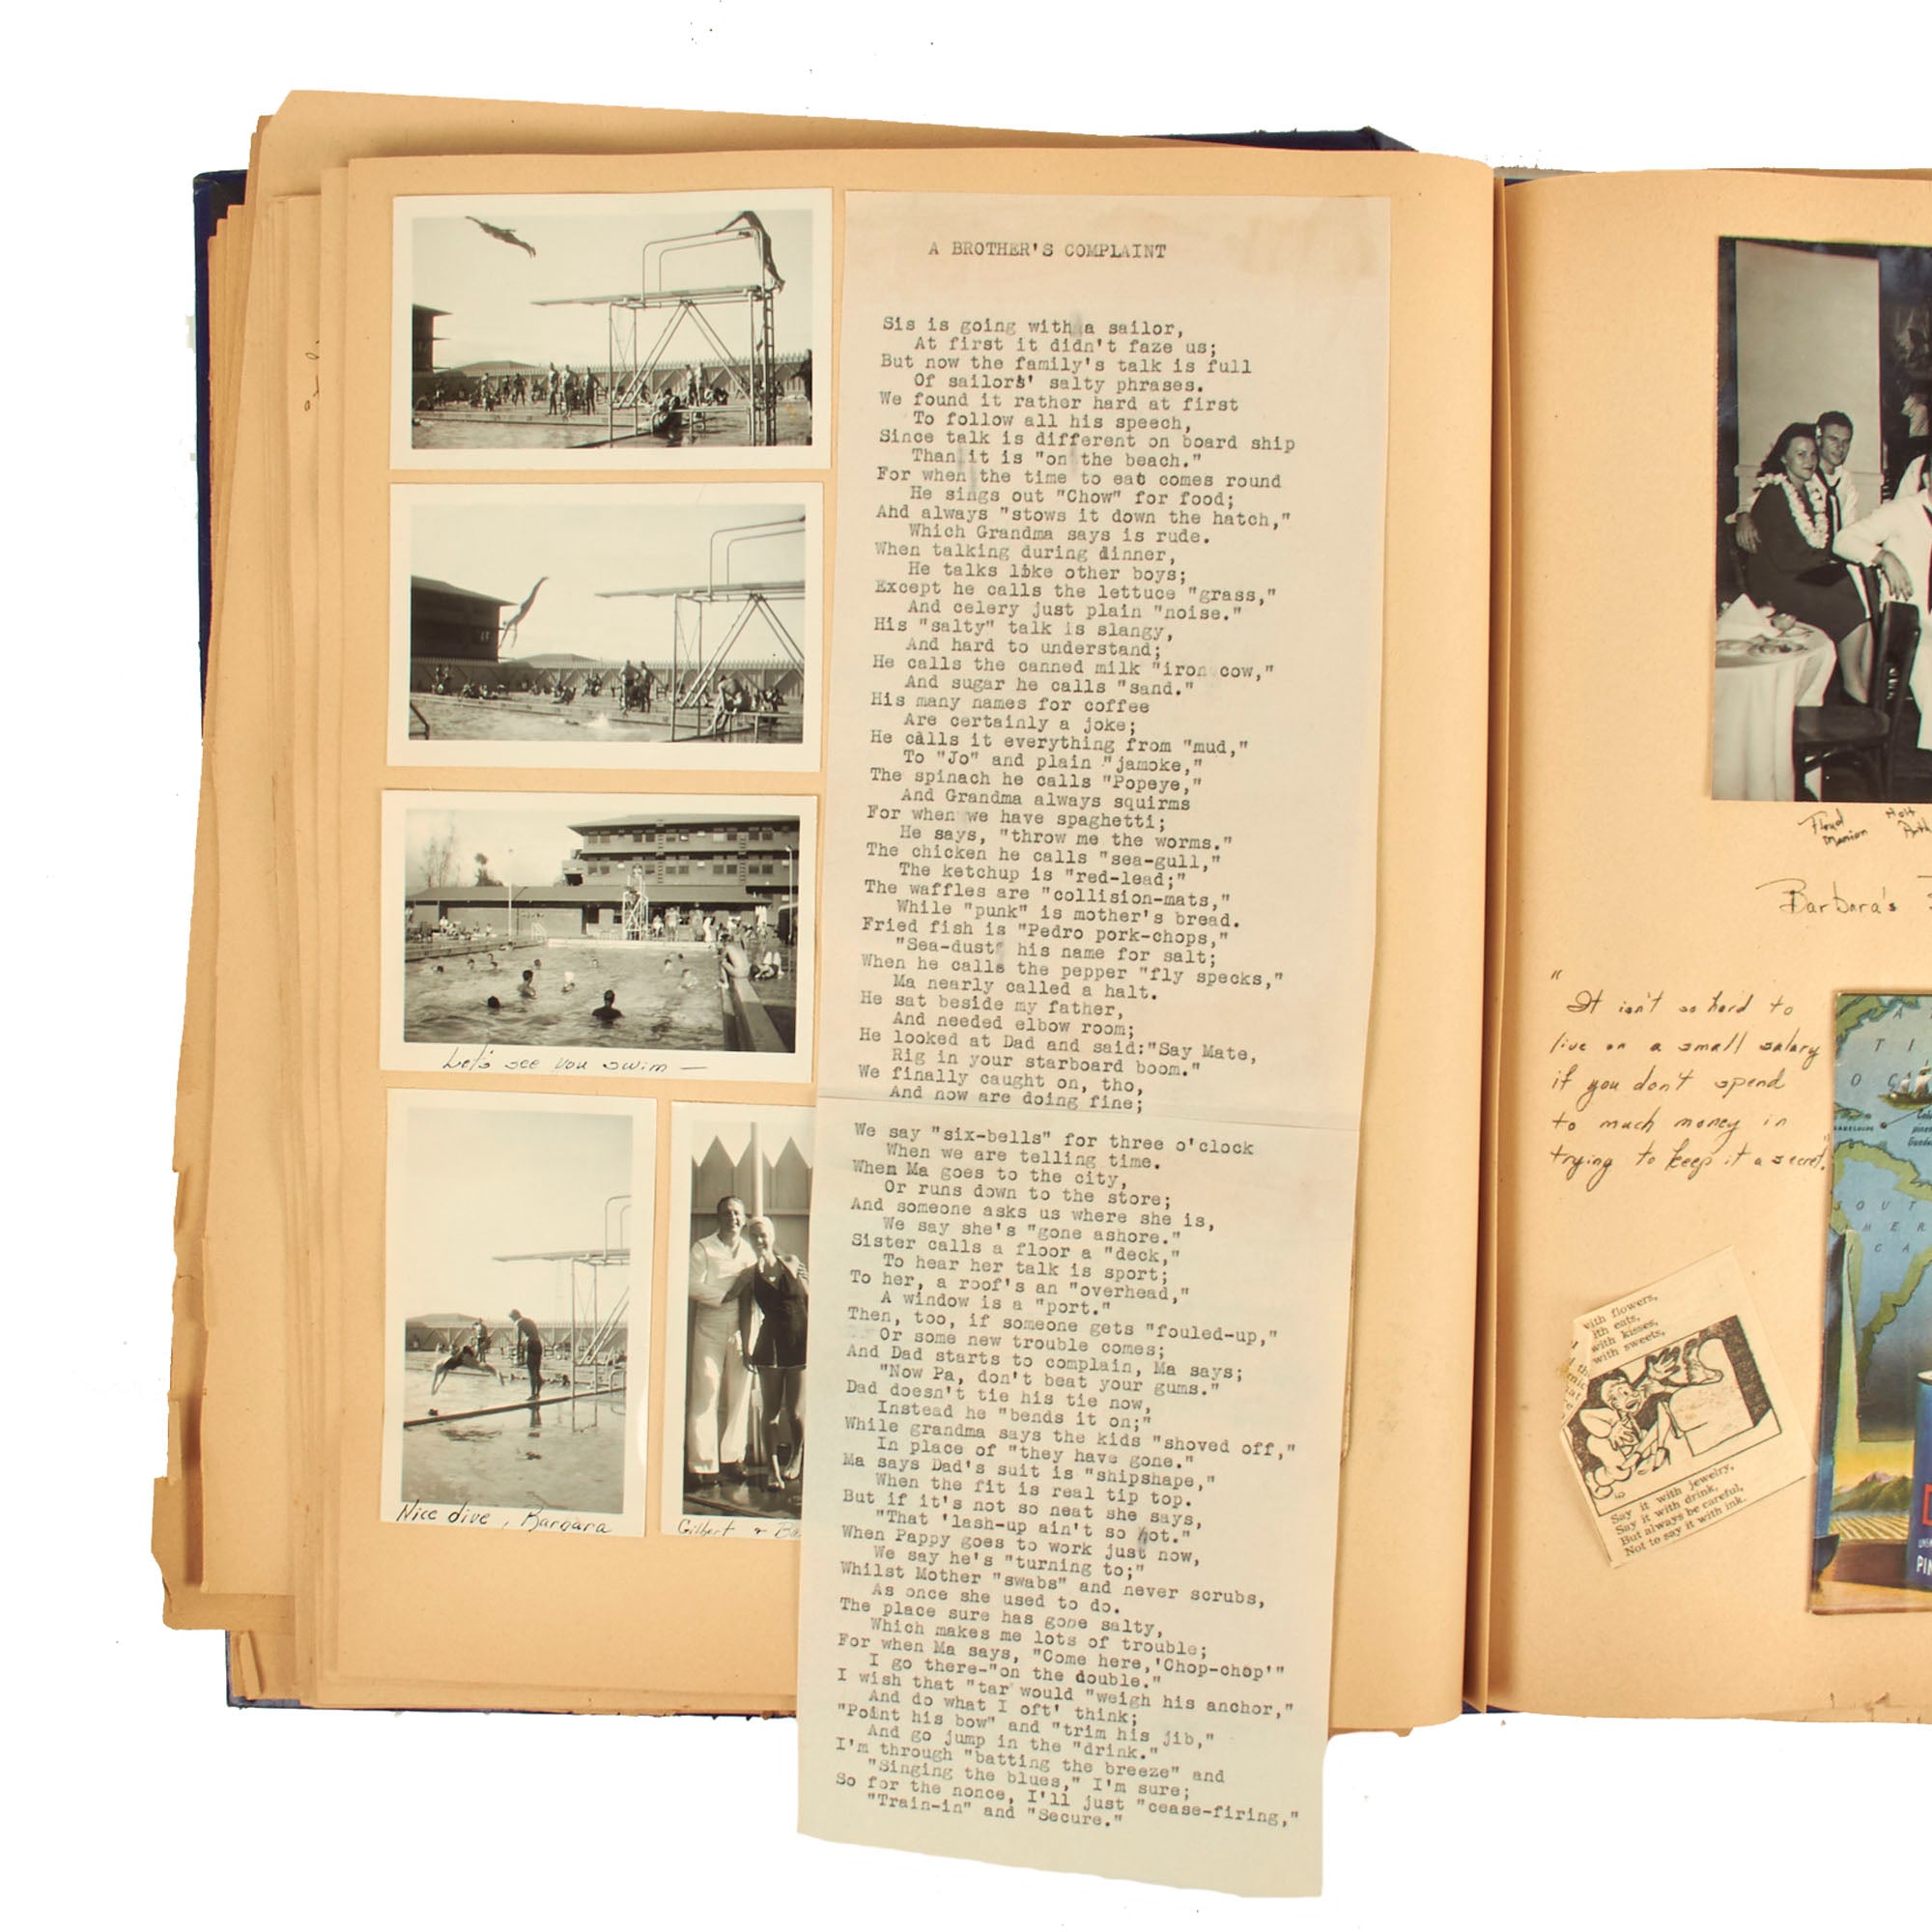 A BROTHER'S COMPLAINT
Sis is going with a sailor,
At first it didn't faze us;
But now the family's talk is full
Of sailors' salty phrases.
We found it rather hard at first
To follow all his speech,
Since talk is different on board ship
Than it is "on the beach."
For when the time to eat comes round
He sings out "Chow" for food;
Ahd always "stows it down the hatch,"
Which Grandma says is rude.
When talking during dinner,
He talks like other boys;
Except he calls the lettuce "grass,"
And celery just plain "noise."
His "salty" talk is slangy,
And hard to understand;
He calls the canned milk "iron cow,"
And sugar he calls "sand."
His many names for coffee
Are certainly a joke;
He calls it everything from "mud,"
To "Jo" and plain "jamoke,"
The spinach he calls "Popeye,"
And Grandma always squirms
For when we have spaghetti;
He says, "throw me the worms."
The chicken he calls "sea-gull,"
The ketchup is "red-lead;"
The waffles are "collision-mats,"
While "punk" is mother's bread.
Fried fish is "Pedro pork-chops,"
"Sea-dust" his name for salt;
When he calls the pepper "fly specks,"
Ma nearly called a halt.
He sat beside my father,
And needed elbow room;
He looked at Dad and said:"Say Mate,
Rig in your starboard boom."
We finally caught on, tho,
And now are doing fine;
We say "six-bells" for three o'clock
When we are telling time.
When Ma goes to the city,
Or runs down to the store;
And someone asks us where she is,
We say she's "gone ashore."
Sister calls a floor a "deck,"
To hear her talk is sport;
To her, a roof's an "overhead,"
A window is a "port."
Then, too, if someone gets "fouled-up,"
Or some new trouble comes;
And Dad starts to complain, Ma says;
"Now Pa, don't beat your gums."
Dad doesn't tie his tie now,
Instead he "bends it on;"
While grandma says the kids "shoved off,"
In place of "they have gone."
Ma says Dad's suit is "shipshape,"
When the fit is real tip top.
But if it's not so neat she says,
"That 'lash-up ain't so hot."
When Pappy goes to work just now,
We say he's "turning to;"
Whilst Mother "swabs" and never scrubs,
As once she used to do.
The place sure has gone salty,
Which makes me lots of trouble;
For when Ma says, "Come here,'Chop-chop'"
I go there-"on the double."
I wish that "tar" would "weigh his anchor,"
And do what I oft' think;
"Point his bow" and "trim his jib,"
And go jump in the "drink."
I'm through "batting the breeze" and
"Singing the blues," I'm sure;
So for the nonce, I'll just "cease-firing,"
"Train-in" and "Secure."
Let's see you swim —
Nice dive, Barbara
Gilbert + Ba
Floyd
Manion
Barbara's
"It isn't so hard to
live on a small salary
if you don't spend
to much money in
trying to keep it a secret."
with flowers,
ith eats,
with kisses,
with sweets,
Say it with jewelry,
Say it with drink,
But always be careful,
Not to say it with ink.
SOUT
PIN